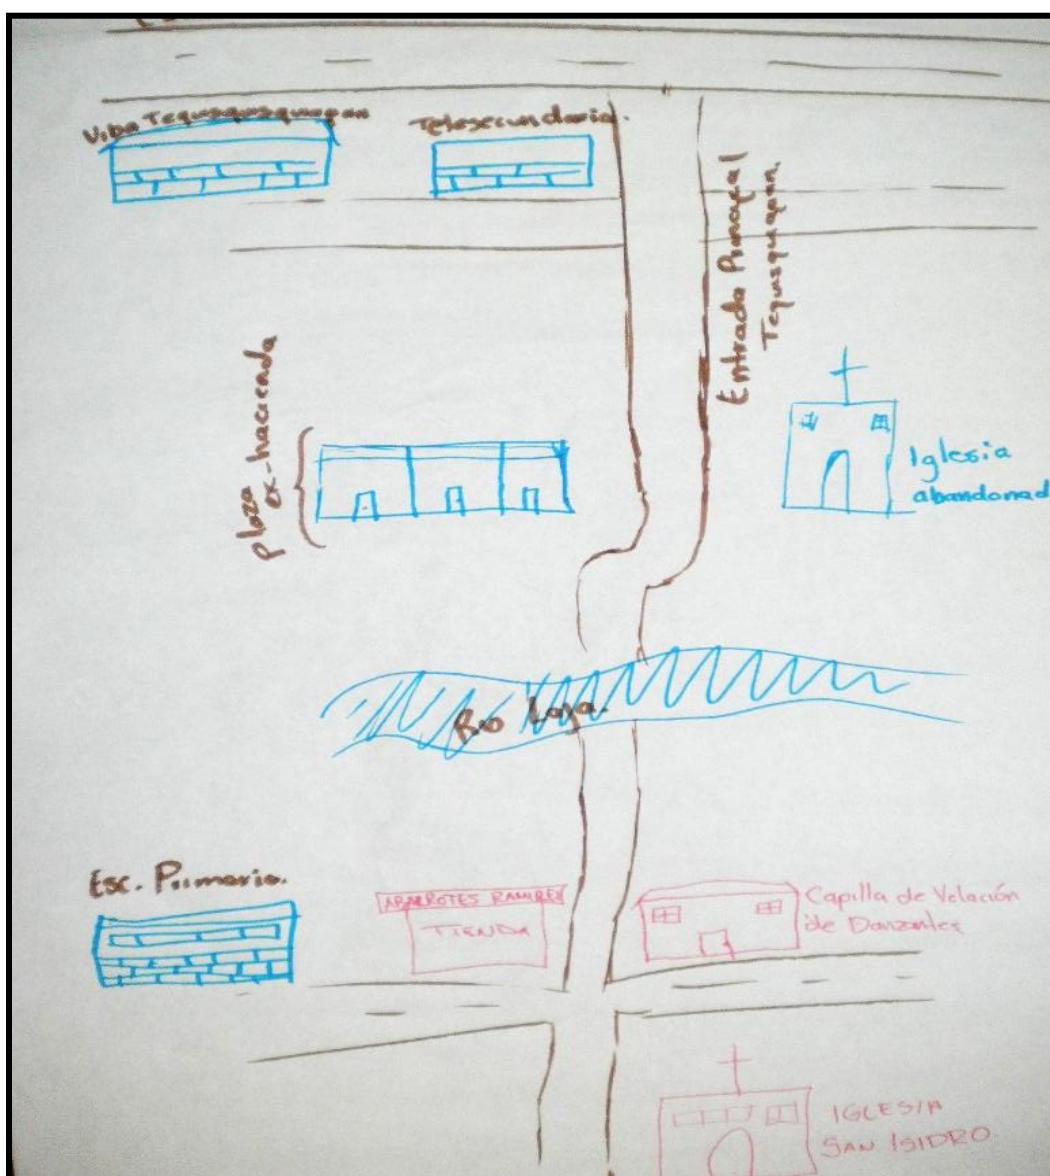 Telesecundaria.
Entrada Principal
Tequisquiapan.
Plaza
ex-hacienda
Iglesia
abandonad
Rio Laja.
Esc. Primaria.
ABARROTES RAMIREZ
TIENDA
Capilla de Velación
de Danzantes
IGLESIA
SAN ISIDRO